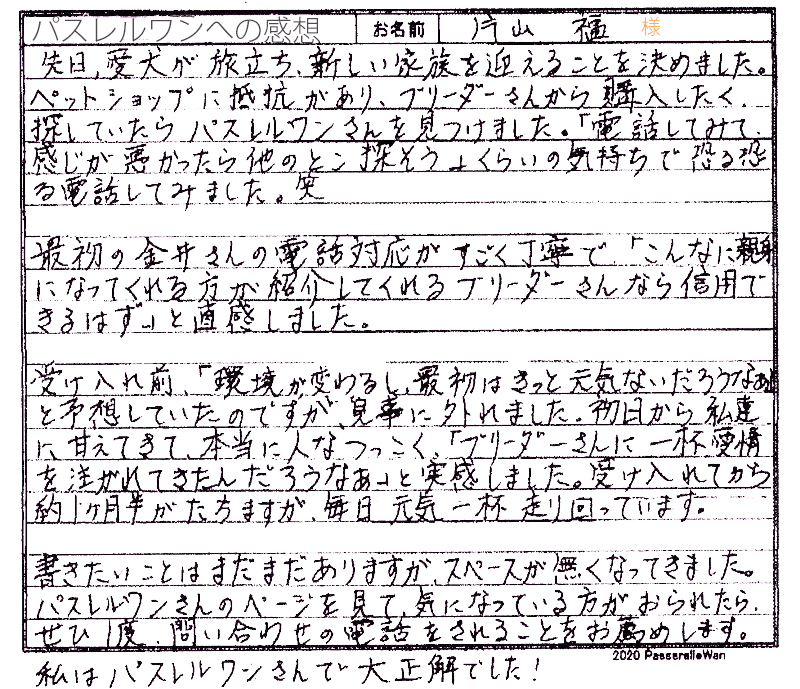 パスレルワンへの感想 お名前 片山 様
先日、愛犬が旅立ち、新しい家族を迎えることを決めました。
ペットショップに抵抗があり、ブリーダーさんから購入したく、
探していたらパスレルワンさんを見つけました。「電話してみて、
感じが悪かったら他のとこ探そう」くらいの気持ちで恐る恐
る電話してみました。笑
最初の金井さんの電話対応がすごく丁寧で「こんなに親身
になってくれる方が紹介してくれるブリーダーさんなら信用で
きるはず」と直感しました。
受け入れ前、「環境が変わるし、最初はきっと元気ないだろうなぁ」
と予想していたのですが、見事に外れました。初日から私達
に甘えてきて、本当に人なつっこく、「ブリーダーさんに一杯愛情
を注がれてきたんだろうなぁ」と実感しました。受け入れてから
約1ヶ月半がたちますが、毎日元気一杯走り回っています。
書きたいことはまだまだありますが、スペースが無くなってきました。
パスレルワンさんのページを見て、気になっている方がおられたら、
ぜひ1度、問い合わせの電話をされることをお薦めします。
2020 PasserelleWan
私はパスレルワンさんで大正解でした！